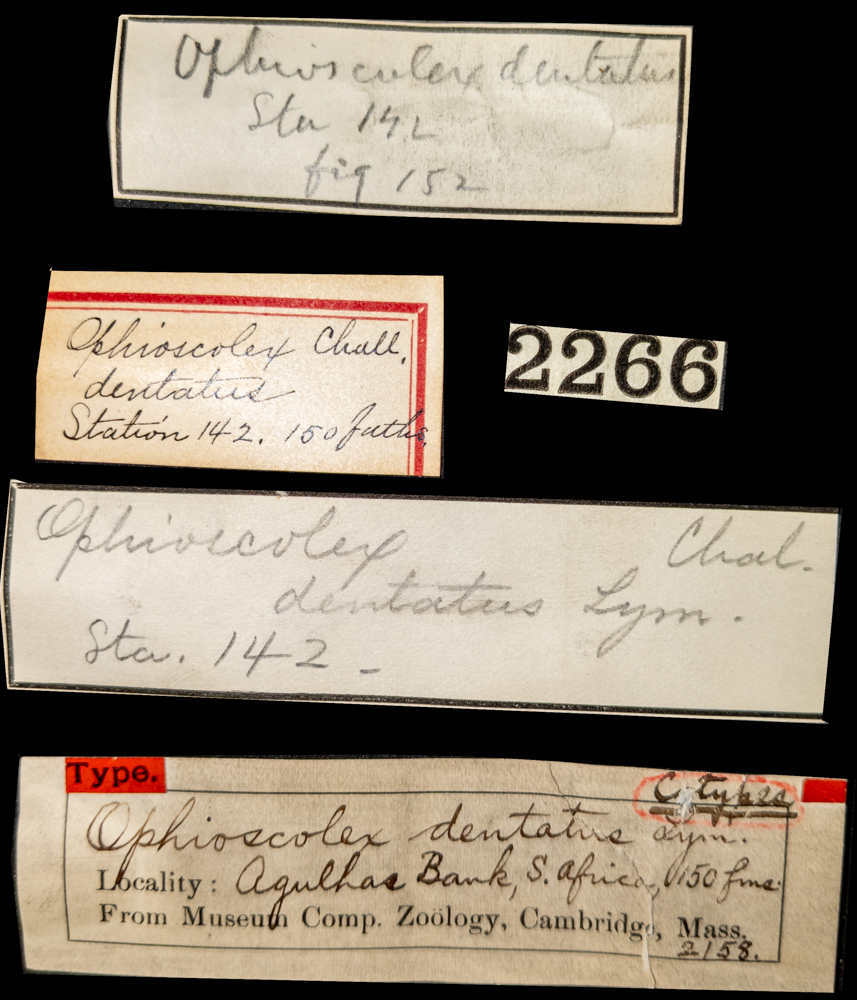 Ophioscolex dentatus
Sta 142
fig 152
Ophioscolex Chall.
dentatus
Station 142. 150 faths.
2266
Ophioscolex Chal.
dentatus Lym.
Sta. 142 -
Type.
Cotypes
Ophioscolex dentatus Lym.
Locality: Agulhas Bank, S. Africa, 150 fms.
From Museum Comp. Zoölogy, Cambridge, Mass.
2158.